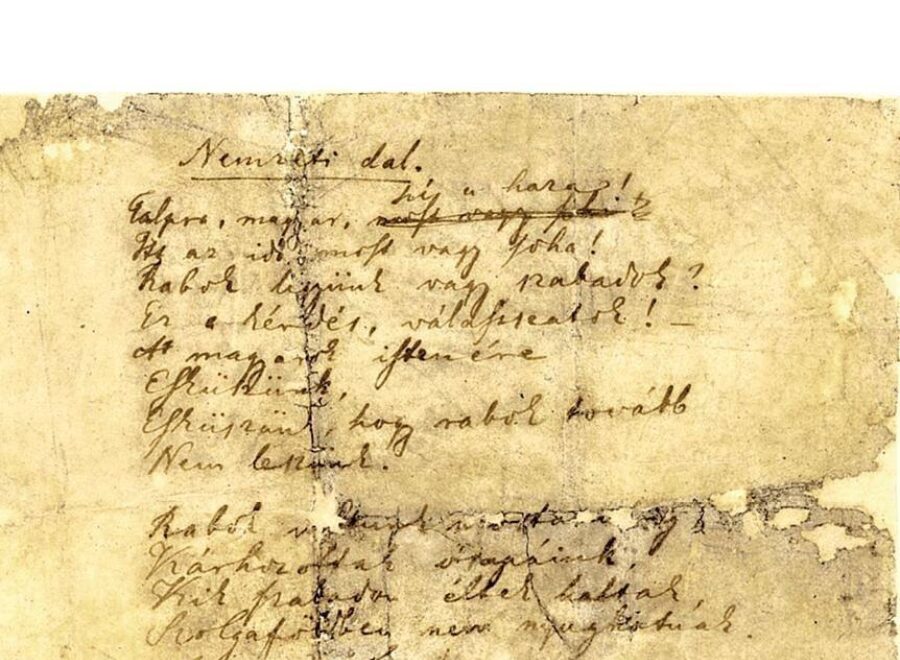 Nemzeti dal.
hí a haza!
Talpra, magyar, most vagy soha
Itt az idő, most vagy soha!
Rabok legyünk vagy szabadok?
Ez a kérdés, válasszatok! –
A magyarok istenére
Esküszünk,
Esküszünk, hogy rabok tovább
Nem leszünk.
Rabok voltunk mostanáig
Kárhozottak ősapáink,
Kik szabadon éltek haltak,
Szolgaföldben nem nyughatnak.